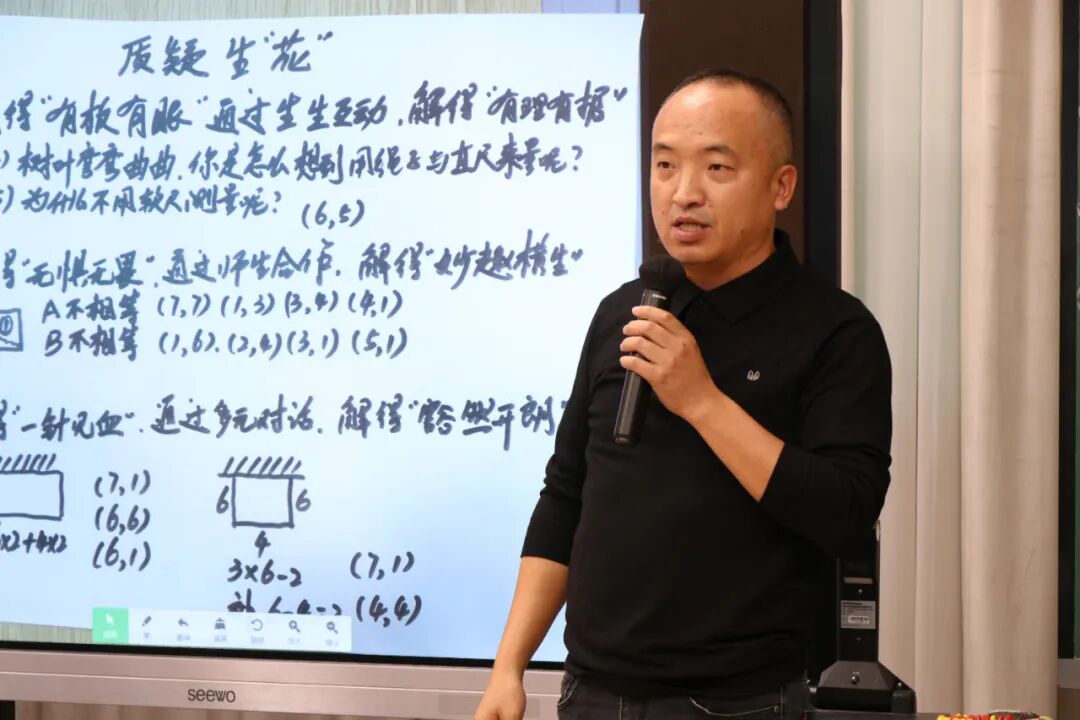 质疑生“花”
得“有板有眼”通过生生互动,解得“有理有据”
树叶弯弯曲曲.你是怎么想到用绳子与直尺来量呢?
为什么不用软尺测量呢? (6,5)
“无惧无畏”,通过师生合作,解得“妙趣横生”
① A不相等 (7,7) (1,3) (3,4) (4,1)
B不相等 (1,6).(2,4) (3,1) (5,1)
“一针见血”.通过多元对话,解得“豁然开朗”
(7,1)
(6,6)
(6,1)
6 6
4
x2+4x2
3×6-2 (7,1)
(4,4)
seewo